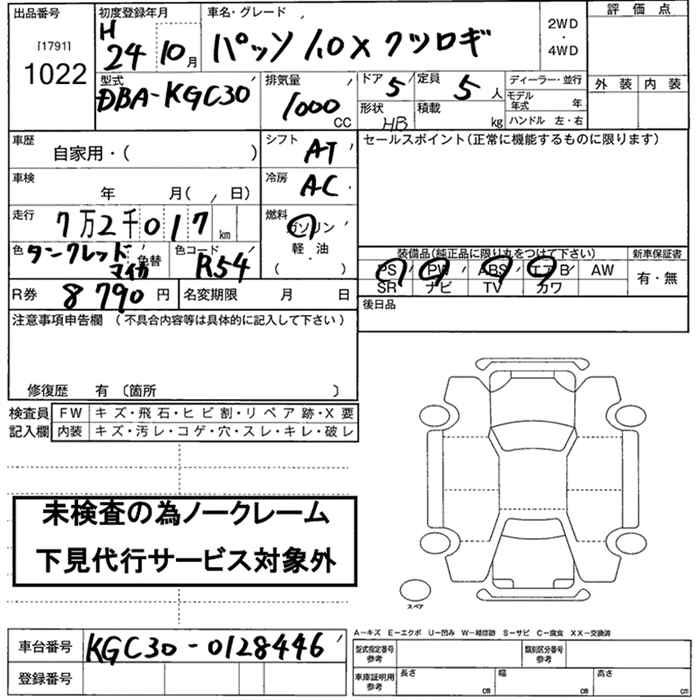 出品番号 [1791] 1022
初度登録年月 H 24 10月
車名・グレード パッソ 1.0X クツロギ
2WD・4WD
評価点
外装 内装
型式 DBA-KGC30
排気量 1000 CC
ドア 5 定員 5 人
形状 HB 積載 kg
ディーラー・並行
モデル年式 年
ハンドル 左・右
車歴 自家用・( )
シフト AT
セールスポイント(正常に機能するものに限ります)
車検 年 月( 日)
冷房 AC
走行 7万2千017 km
燃料 ガソリン 軽・油 ( )
色 ダークレッドマイカ 色替
色コード R54
装備品(純正品に限り丸をつけて下さい)
新車保証書
PS PW ABS エアB AW
SR ナビ TV カワ
有・無
R券 8790円
名変期限 月 日
後日品
注意事項申告欄 (不具合内容等は具体的に記入して下さい)
修復歴 有 〔箇所 〕
検査員 FW キズ・飛石・ヒビ割・リペア跡・X要
記入欄 内装 キズ・汚レ・コゲ・穴・スレ・キレ・破レ
未検査の為ノークレーム
下見代行サービス対象外
スペア
A-キズ E-エクボ U-凹み W-補修跡 S-サビ C-腐食 XX-交換済
車台番号 KGC30-0128446
登録番号
型式指定番号 参考
類別区分番号 参考
車庫証明用 参考
長さ cm 幅 cm 高さ cm